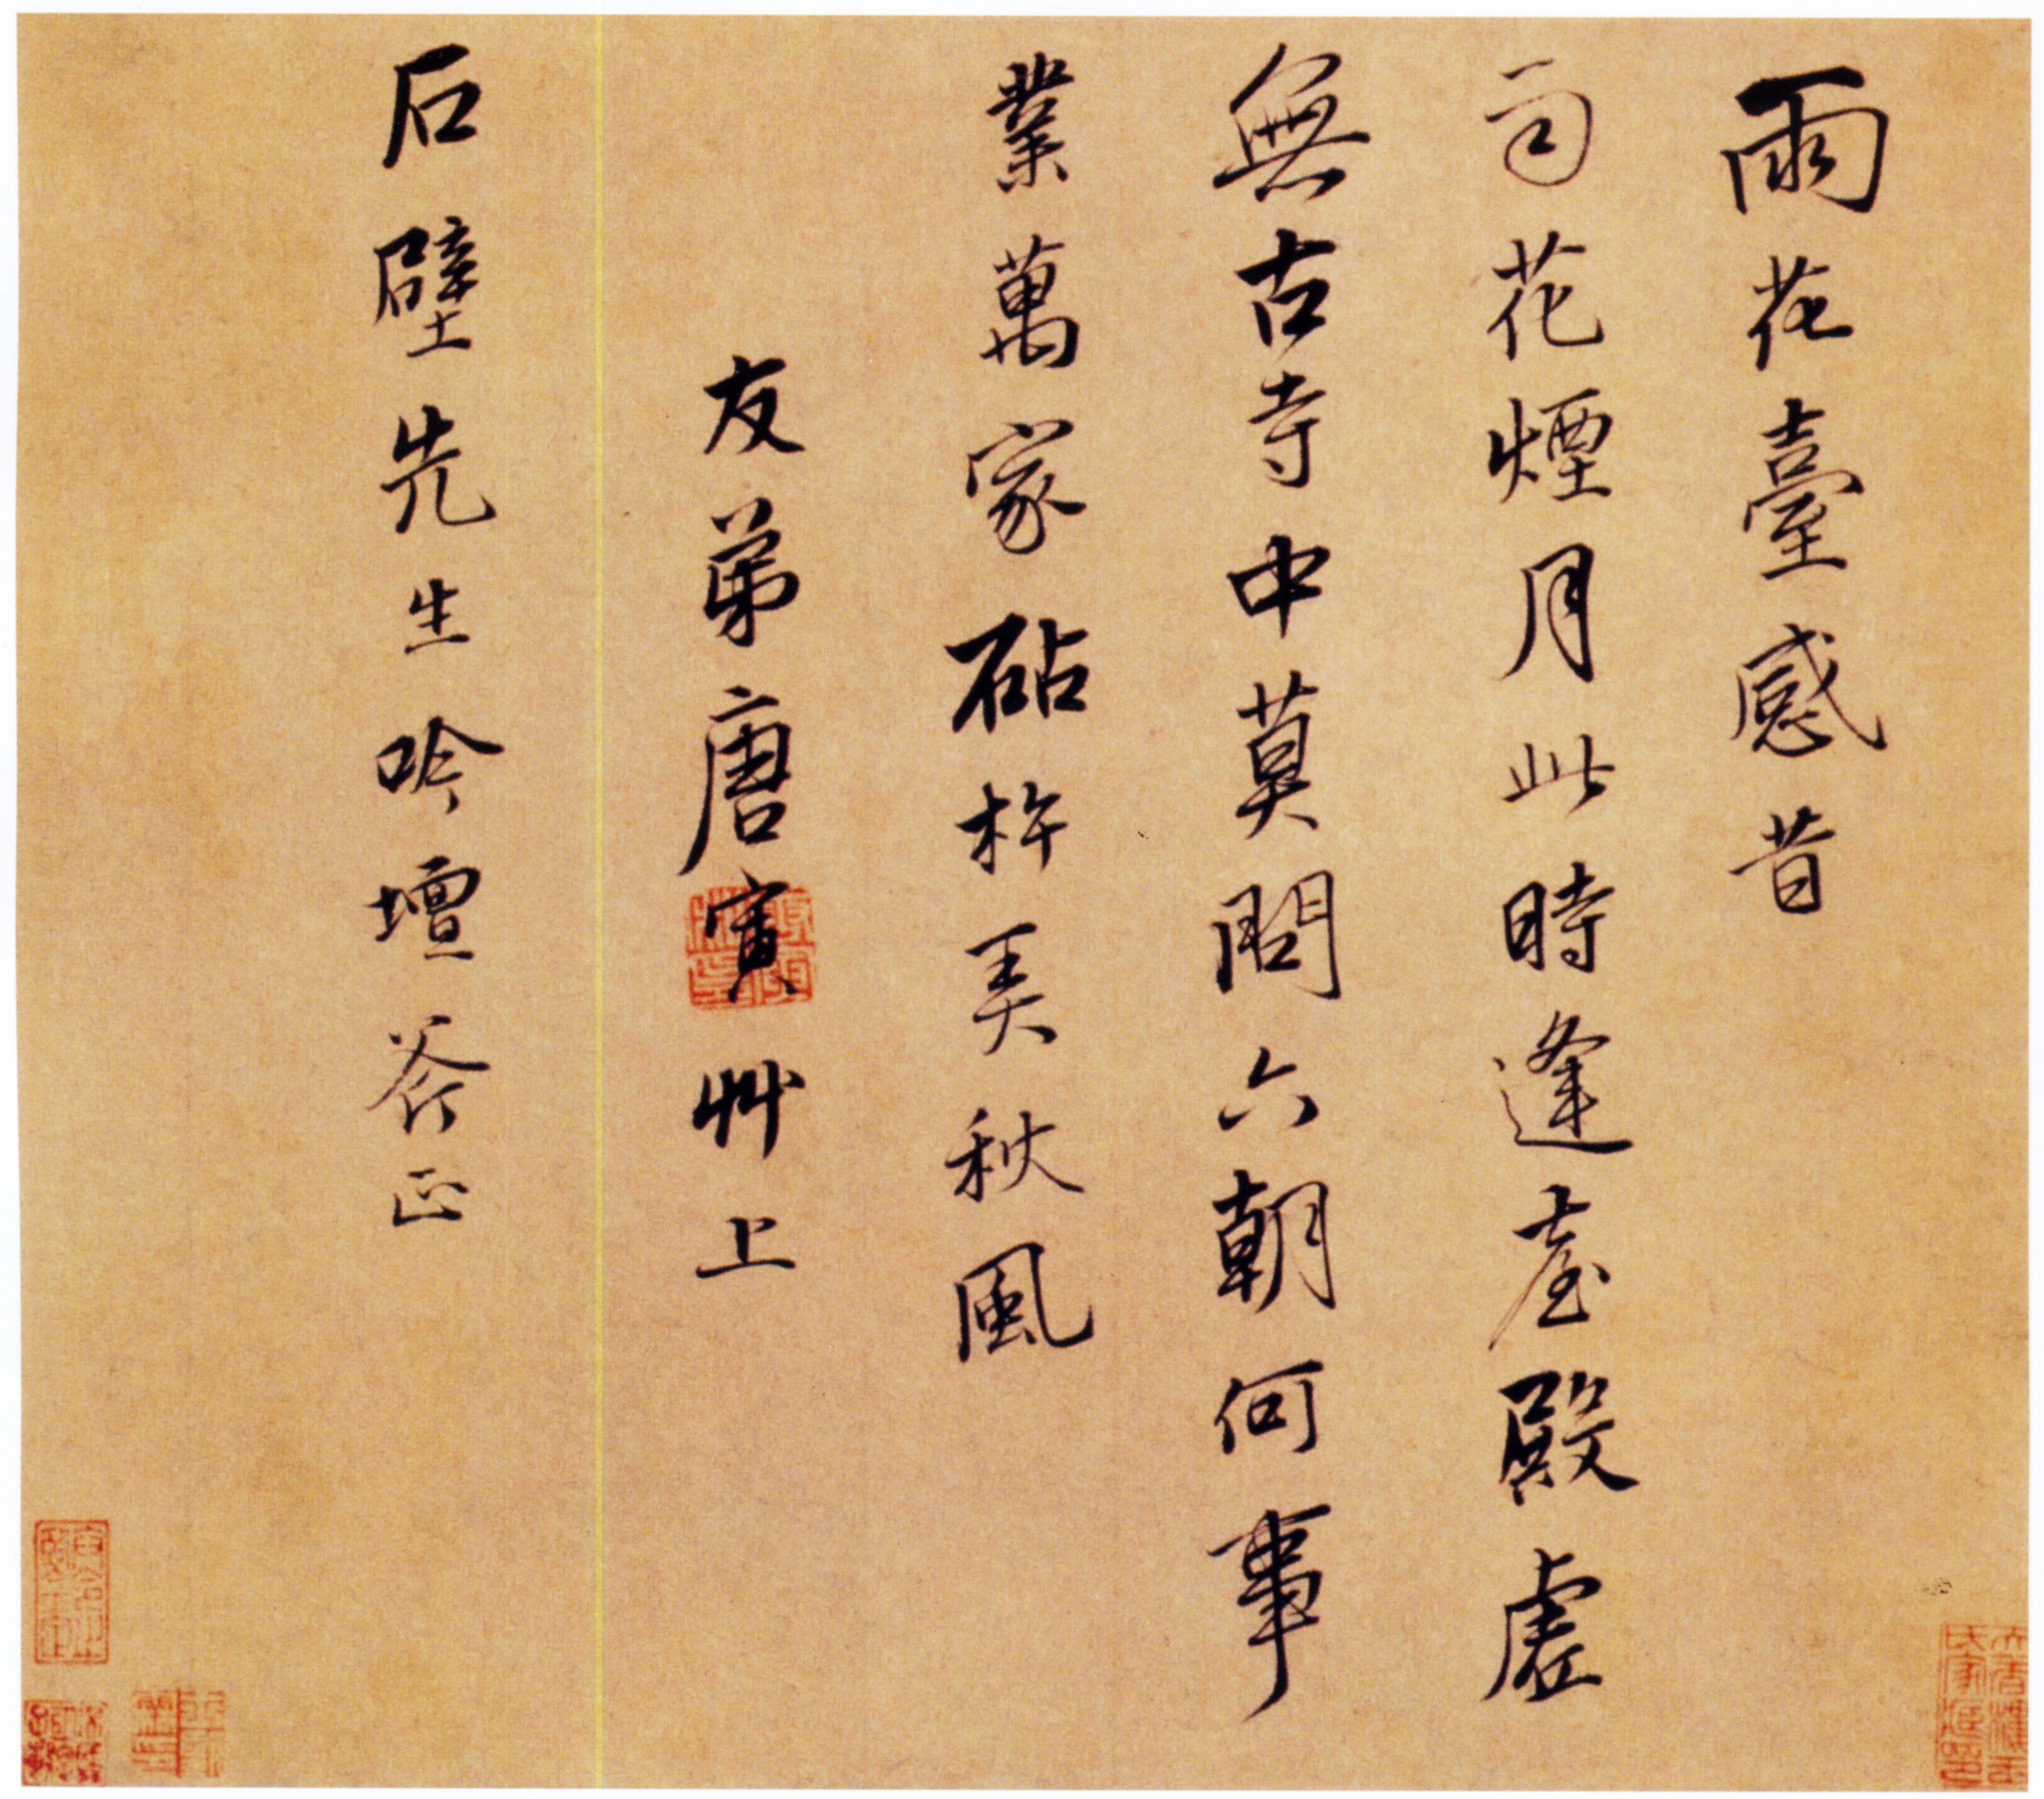 雨花臺感昔
雨花煙月此時逢臺殿虛
無古寺中莫問六朝何事
業萬家砧杵美秋風
友弟唐寅艸上
石壁先生吟壇斧正